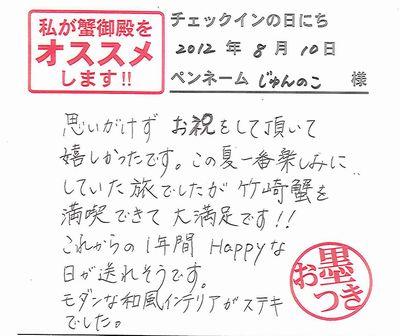 私が蟹御殿を
オススメ
します!!
チェックインの日にち
2012 年 8 月 10 日
ペンネーム じゅんのこ 様
思いがけず お祝をして頂いて
嬉しかったです。この夏一番楽しみに
していた旅でしたが 竹崎蟹を
満喫できて 大満足です!!
これからの1年間 Happyな
日が送れそうです。
モダンな和風インテリアがステキ
でした。
お墨つき